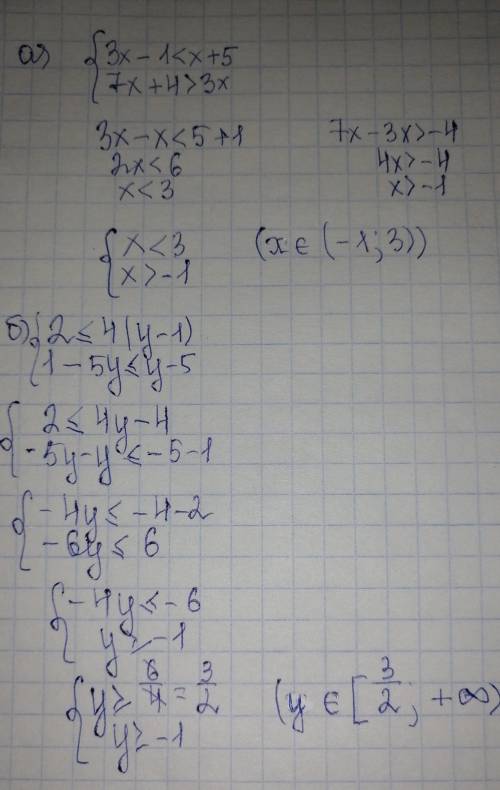 а) { 3x - 1 < x + 5
7x + 4 > 3x
3x - x < 5 + 1 7x - 3x > -4
2x < 6 4x > -4
x < 3 x > -1
{ x < 3 (x ∈ (-1; 3))
x > -1
б) { 2 ≤ 4(y - 1)
1 - 5y ≤ y - 5
{ 2 ≤ 4y - 4
-5y - y ≤ -5 - 1
{ -4y ≤ -4 - 2
-6y ≤ 6
{ -4y ≤ -6
y ≥ -1
{ y ≥ 6/4 = 3/2 (y ∈ [3/2; +∞)
y ≥ -1